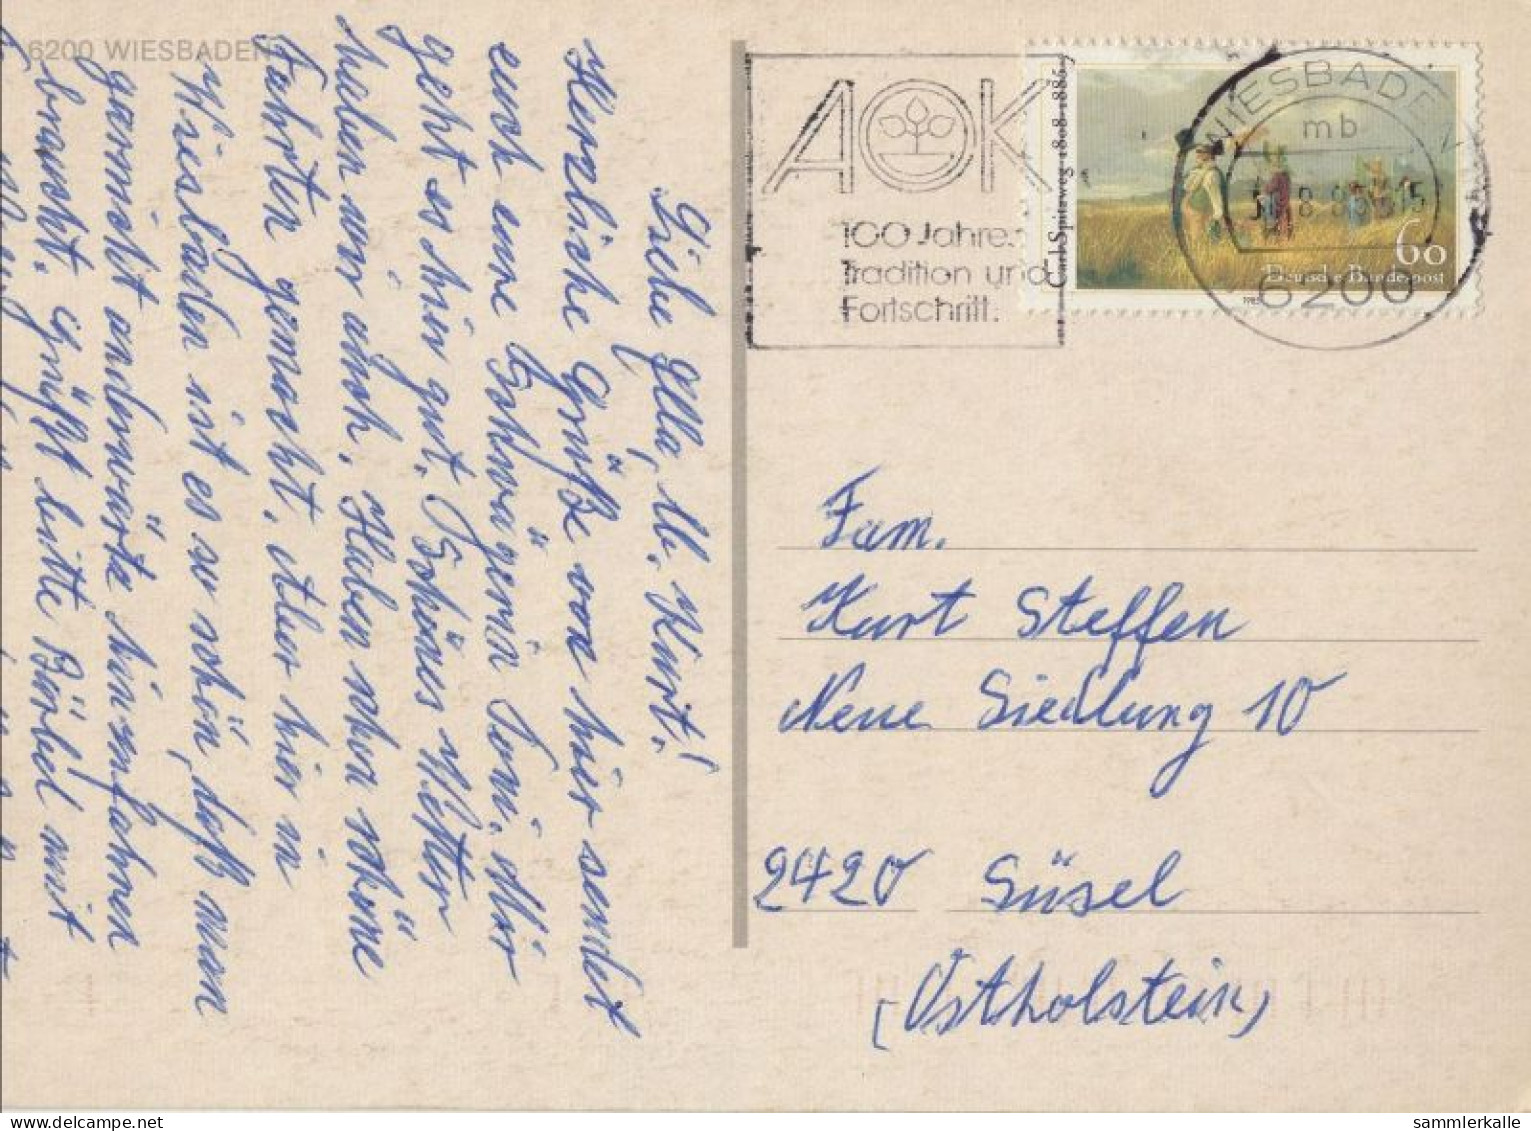 6200 WIESBADEN
Liebe Ella, u. Kurt!
Herzliche Grüße von hier sendet
euch eure Schwägerin Toni. Mir
geht es hier gut. Schönes Wetter
haben wir auch. Haben schon schöne
Fahrten gemacht. Aber hier in
Wiesbaden ist es so schön, daß man
garnicht anderwärts hinzufahren
braucht. Grüßt bitte Bärbel mit
AOK
100 Jahre
Tradition und
Fortschritt.
WIESBADEN
mb
15
6200
Carl Spitzweg 1808-1886
60
Deutsche Bundespost
1985
Fam.
Kurt Steffen
Neue Siedlung 10
2420 Süsel
(Ostholstein)
sammlerkalle